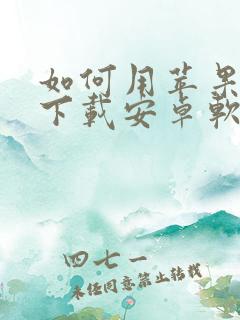 如何用苹果
下载安卓软
四七一
未经同意禁止转载